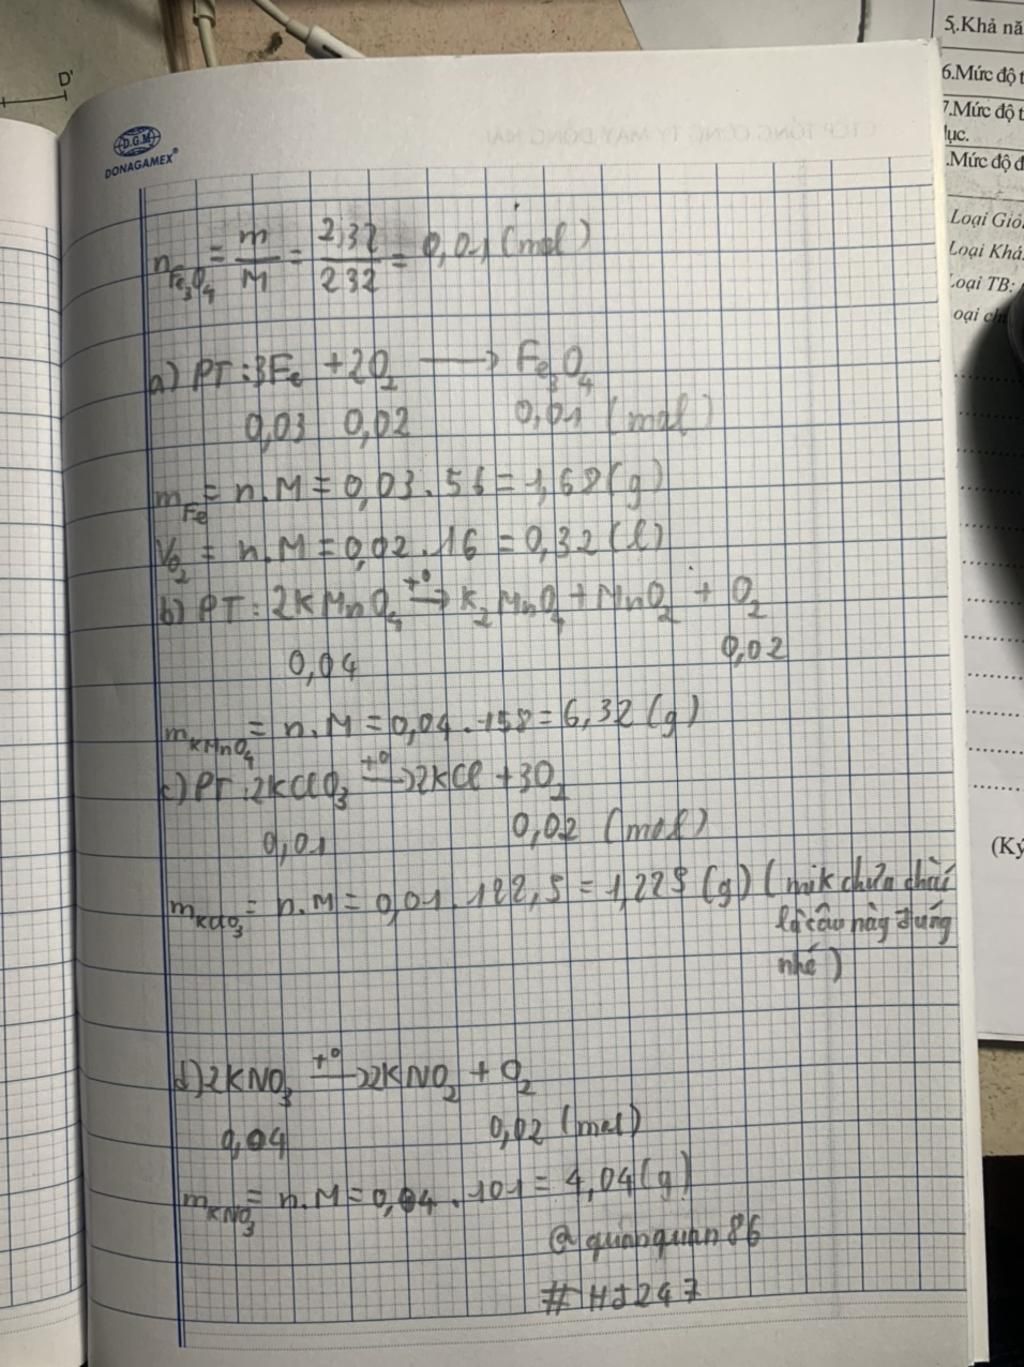 D'
5.Khả nă
6.Mức độ t
7.Mức độ t
lục.
.Mức độ đ
Loại Giỏ
Loại Khá
Loại TB:
(Ký
D.G.M
DONAGAMEX®
CTCP TỔNG CÔNG TY MAY ĐỒNG NAI
nFe₃O₄ = m/M = 2,32/232 = 0,01 (mol)
a) PT: 3Fe + 2O₂ → Fe₃O₄
0,03 0,02 0,01 (mol)
mFe = n.M = 0,03.56 = 1,68 (g)
VO₂ = n.M = 0,02.16 = 0,32 (l)
b) PT: 2KMnO₄ t° → K₂MnO₄ + MnO₂ + O₂
0,04 0,02
mKMnO₄ = n.M = 0,04.158 = 6,32 (g)
c) PT: 2KClO₃ t° → 2KCl + 3O₂
0,01 0,02 (mol)
mKClO₃ = n.M = 0,01.122,5 = 1,225 (g) (mik chưa chắc
là câu này đúng
nhé)
d) 2KNO₃ t° → 2KNO₂ + O₂
0,04 0,02 (mol)
mKNO₃ = n.M = 0,04.101 = 4,04 (g)
@quanquan86
#HJ247